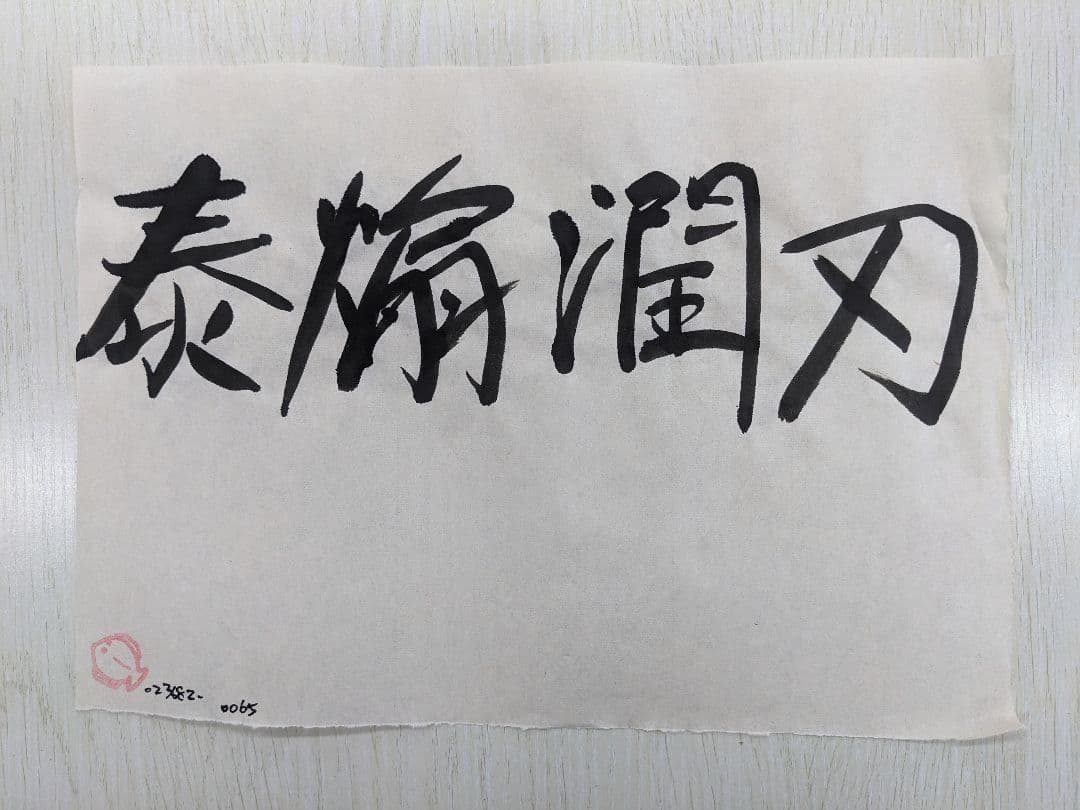 泰煽潤刃
0065